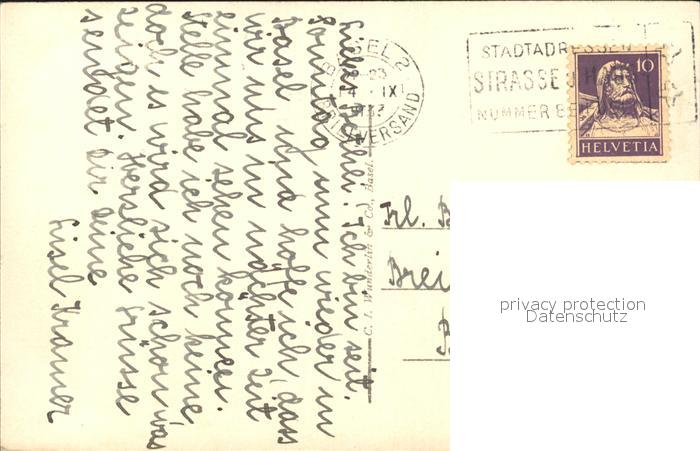 Liebes Bethli! Ich bin seit
Sonntag nun wieder in
Basel und hoffe ich, dass
wir uns in nächster Zeit
einmal sehen können.
Stelle habe ich noch keine
doch es wird sich schon was
zeigen. Herzliche Grüsse
sendet dir deine
Lisel Kramer
C. J. Wunderlin & Co., Basel.
BASEL 2
IX
BRIEFVERSAND
STADTADRESSEN
STRASSE
NUMMER
10
HELVETIA
Frl. B
Brei
privacy protection
Datenschutz